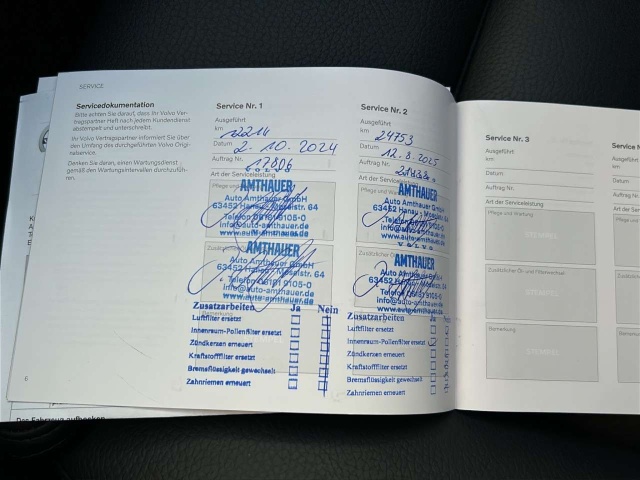 SERVICE
Servicedokumentation
Bitte achten Sie darauf, dass Ihr Volvo Ver-
tragspartner Heft nach jedem Kundendienst
abstempelt und unterschreibt.
Ihr Volvo Vertragspartner informiert Sie über
den Umfang des durchgeführten Volvo Origi-
nalservice.
Denken Sie daran, einen Wartungsdienst
gemäß den Wartungsintervallen durchzufüh-
ren.
6
Service Nr. 1
Ausgeführt
km 12214
Datum 2-10.2024
Auftrag Nr. 17806
Art der Serviceleistung
Pflege und
AMTHAUER
Auto Amthauer GmbH
63452 Hanau, Moselstr. 64
Telefon 06181 9105-0
info@auto-amthauer.de
www.auto-amthauer.de
AMTHAUER
Auto Amthauer GmbH
63452 Hanau, Moselstr. 64
Telefon 06181 9105-0
info@auto-amthauer.de
www.auto-amthauer.de
Bemerkung
Zusatzarbeiten Ja Nein
Luftfilter ersetzt
Innenraum-Pollenfilter ersetzt
Zündkerzen erneuert
Kraftstofffilter ersetzt
Bremsflüssigkeit gewechselt
Zahnriemen erneuert
Service Nr. 2
Ausgeführt
km 24753
Datum 12.8.2025
Auftrag Nr.
Art der Serviceleistung
Pflege und
AMTHAUER
Auto Amthauer GmbH
63452 Hanau, Moselstr. 64
Telefon 06181 9105-0
info@auto-amthauer.de
www.auto-amthauer.de
VOLVO
AMTHAUER
Auto Amthauer GmbH
63452 Hanau, Moselstr. 64
Telefon 06181 9105-0
info@auto-amthauer.de
www.auto-amthauer.de
Zusatzarbeiten Ja
Luftfilter ersetzt
Innenraum-Pollenfilter ersetzt
Zündkerzen erneuert
Kraftstofffilter ersetzt
Bremsflüssigkeit gewechselt
Zahnriemen erneuert
Service Nr. 3
Ausgeführt
km
Datum
Auftrag Nr.
Art der Serviceleistung
Pflege und Wartung
STEMPEL
Zusätzlicher Öl- und Filterwechsel
STEMPEL
Bemerkung
STEMPEL
Service N
Ausgeführt
km
Datum